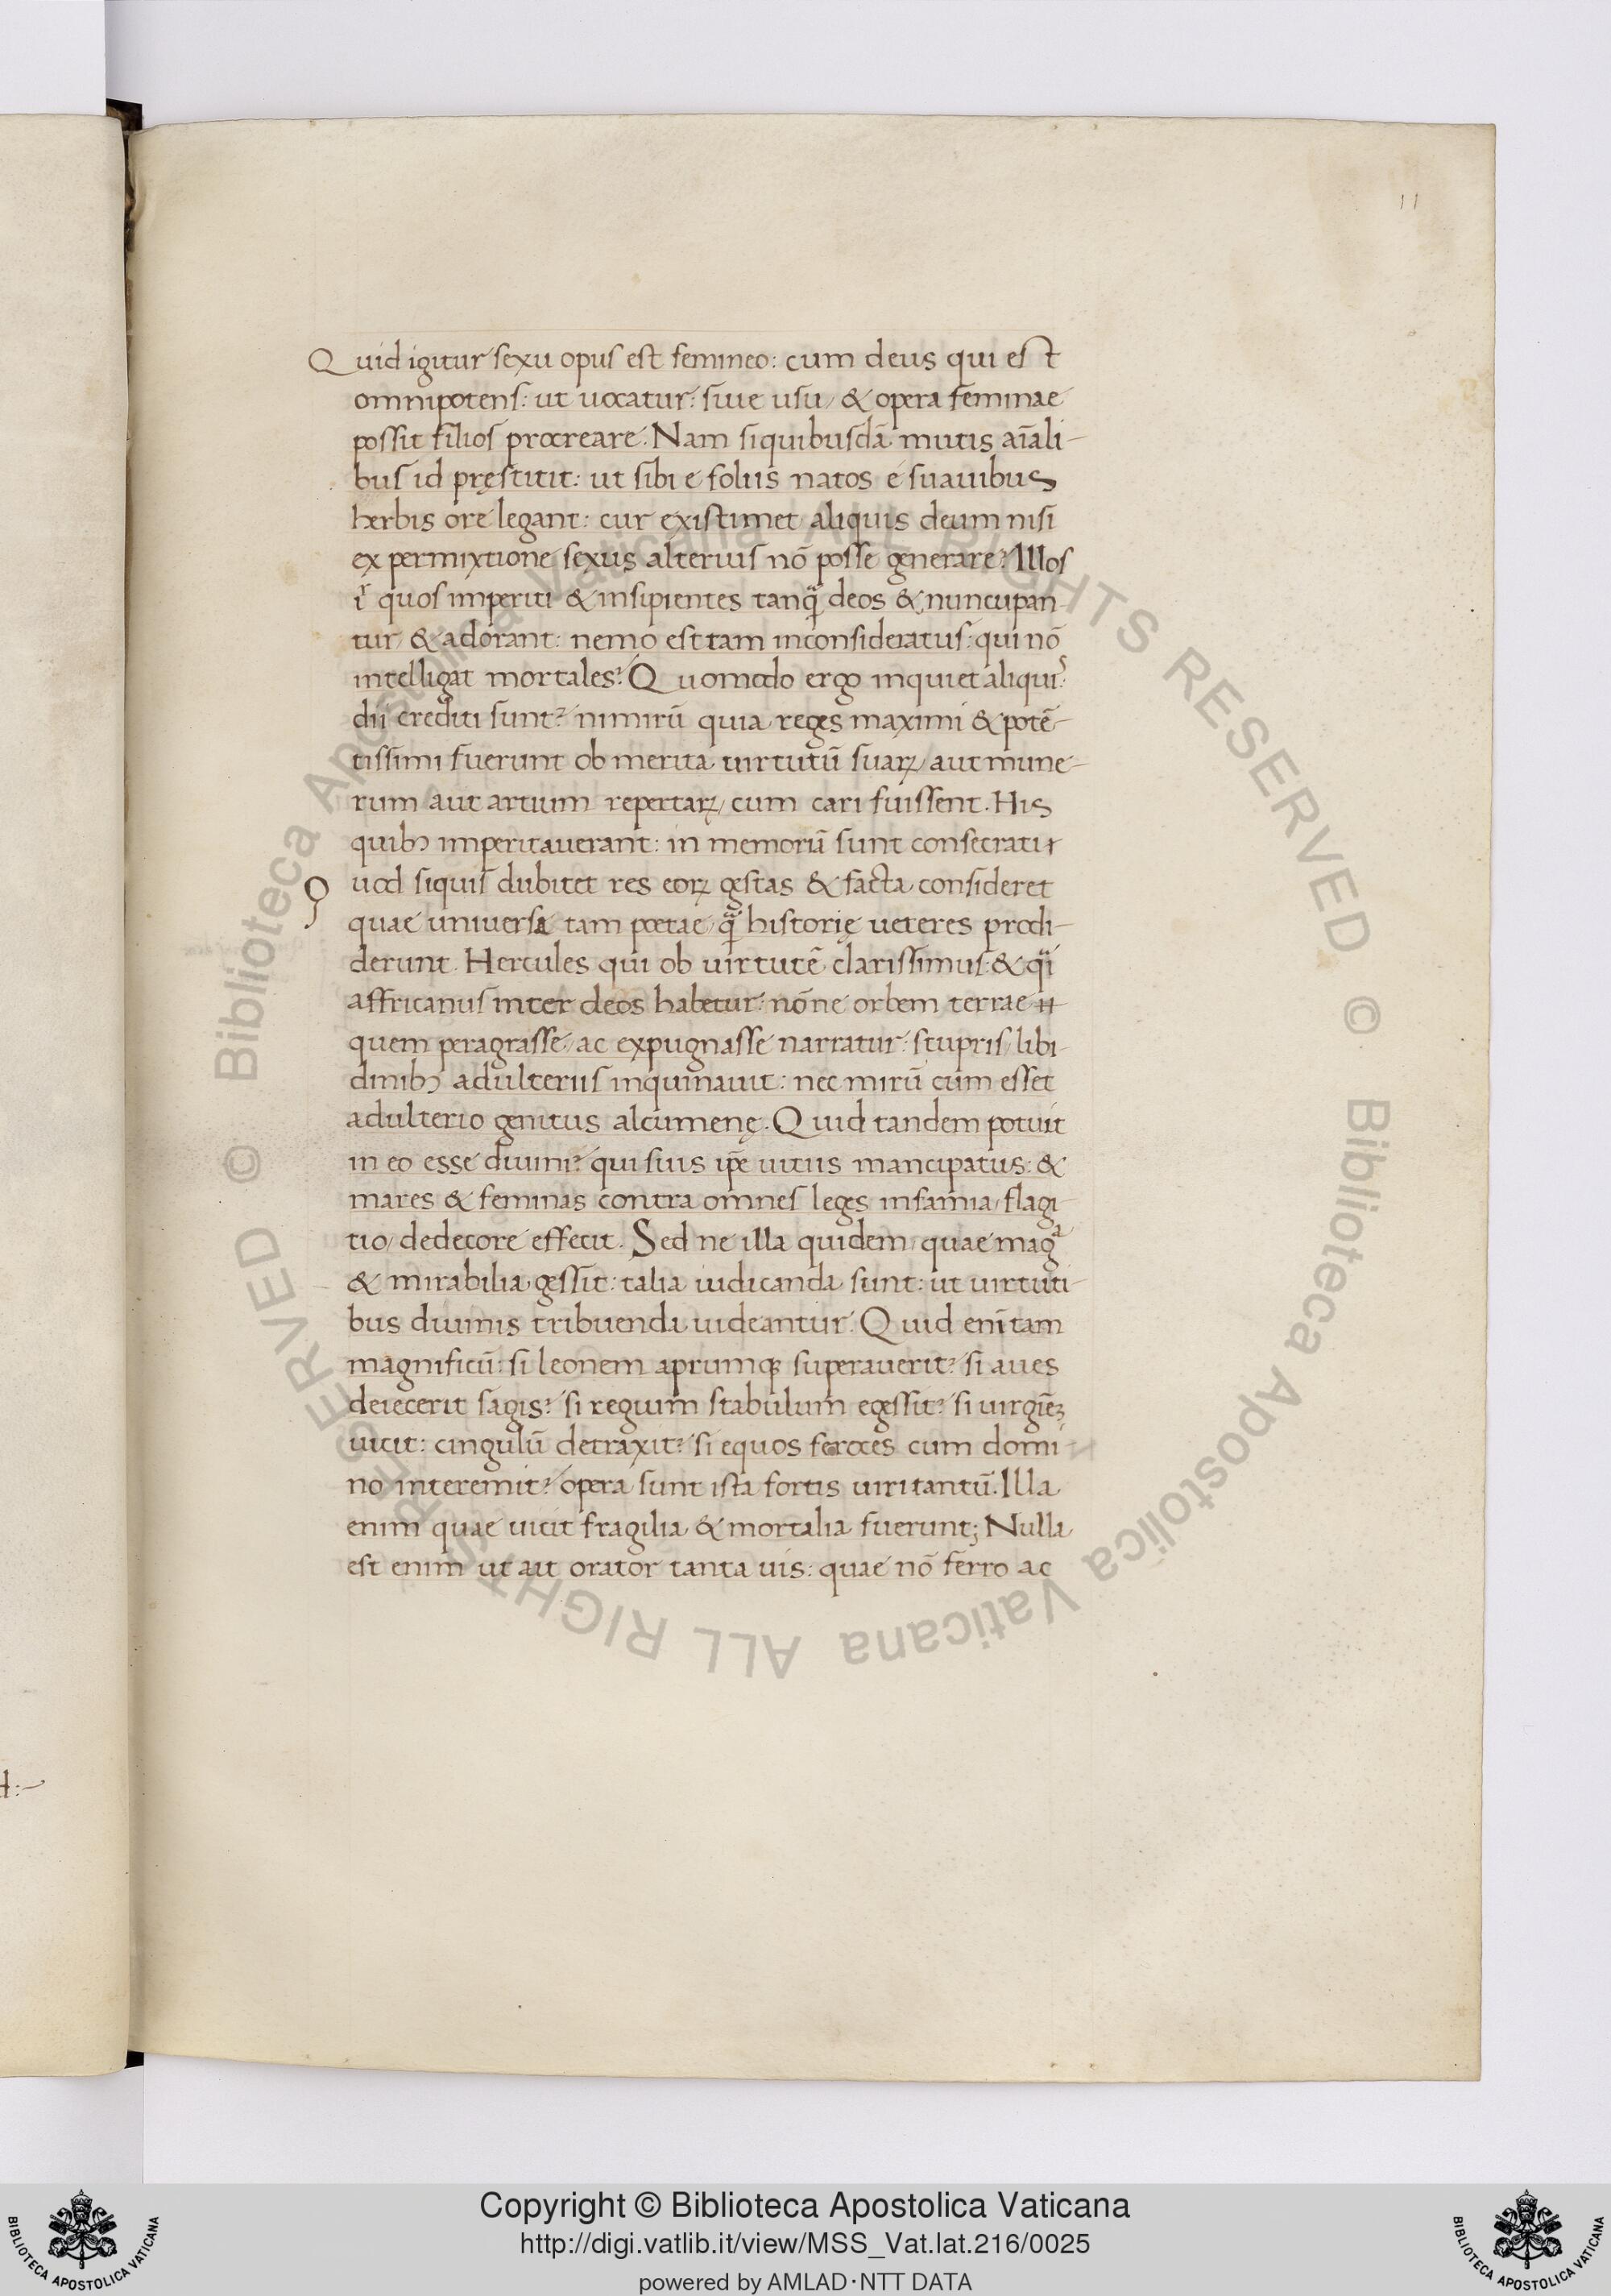 11
Quid igitur sexu opus est femineo: cum deus qui est
omnipotens: ut uocatur: siue usu / & opera feminae
possit filios procreare. Nam siquibusdā mutis aīali-
bus id pręstitit: ut sibi e foliis natos e suauibus
herbis ore legant: cur existimet aliquis deum nisi
ex permixtione sexus alterius nō posse generare? Illos
quos imperiti & insipientes tanq̄ deos & nuncupan
tur / & adorant: nemo est tam inconsideratus: qui nō
intelligat mortales? Quomodo ergo inquiet aliquis
dii crediti sunt? nimirū quia reges maximi & potē-
tissimi fuerunt ob merita uirtutū suaꝝ / aut mune-
rum aut artium repertaꝝ / cum cari fuissent. His
quibꝫ imperitauerant: in memoriā sunt consecrati
Quod siquis dubitet res eoꝝ gestas & facta consideret
quae universa tam poetae / q̄ historię ueteres prodi-
derunt. Hercules qui ob uirtutē clarissimus: & q̄i
affricanus inter deos habetur: nōne orbem terrae
quem peragrasse / ac expugnasse narratur: stupris / libi-
dinibꝫ adulteriis inquinauit: nec mirū cum esset
adulterio genitus alcumenę. Quid tandem potuit
in eo esse diuini? qui suis ip̄e uitiis mancipatus: &
mares & feminas contra omnes leges infamia / flagi
tio / dedecore effecit. Sed ne illa quidem / quae magᵃ
& mirabilia gessit: talia iudicanda sunt: ut uirtuti-
bus diuinis tribuenda uideantur. Quid enī tam
magnificū: si leonem aprumqꝫ superauerit? si aues
deiecerit sagis? si regium stabulum egessit? si uirgīeꝫ
uicit: cingulū detraxit? si equos feroces cum domi-
no interemit? opera sunt ista fortis uiri tantū. Illa
enim quae uicit fragilia & mortalia fuerunt; Nulla
est enim ut ait orator tanta uis: quae nō ferro ac
d:-
© Biblioteca Apostolica Vaticana ALL RIGHTS RESERVED
© Biblioteca Apostolica Vaticana ALL RIGHTS RESERVED
Copyright © Biblioteca Apostolica Vaticana
http://digi.vatlib.it/view/MSS_Vat.lat.216/0025
powered by AMLAD·NTT DATA
BIBLIOTECA APOSTOLICA VATICANA
BIBLIOTECA APOSTOLICA VATICANA